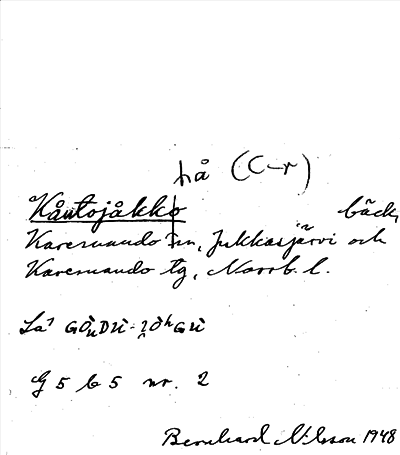 hå (C-r)
Kåutojåkko bäck,
Karesuando sn, Jukkasjärvi och
Karesuando tg, Norrb. l.
G 5 b 5 nr. 2
Bernhard Nilsson 1948